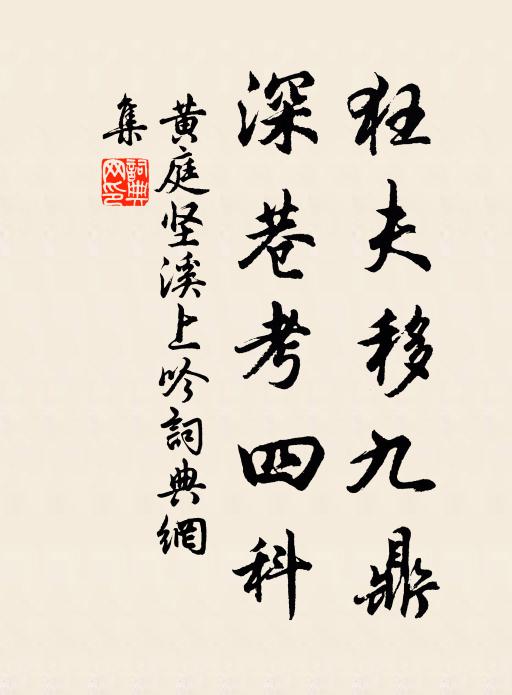 狂夫移九鼎
深巷考四科
黄庭坚溪上吟詞典網
集
詞典網印